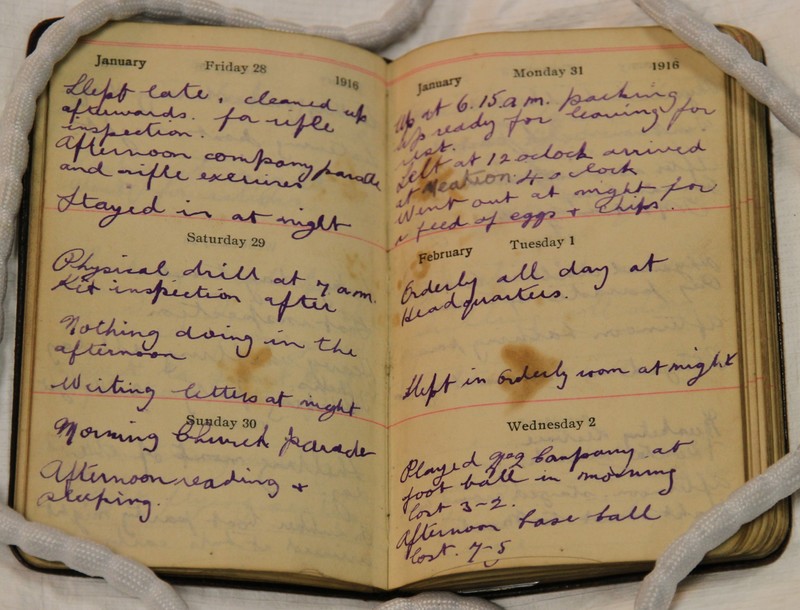 January Friday 28 1916
Slept late, cleaned up
afterwards. for rifle
inspection.
Afternoon company parade
and rifle exercises
Stayed in at night
Saturday 29
Physical drill at 7 a.m.
Kit inspection after
Nothing doing in the
afternoon
Writing letters at night
Sunday 30
Morning Church parade
Afternoon reading +
sleeping.
January Monday 31 1916
Up at 6.15 a.m. packing
up ready for leaving for
rest.
Left at 12 oclock arrived
at 4 oclock
Went out at night for
a feed of eggs + chips.
February Tuesday 1
Orderly all day at
Headquarters.
Slept in orderly room at night
Wednesday 2
Played Company at
foot ball in morning
lost 3-2.
Afternoon base ball
lost. 7-5